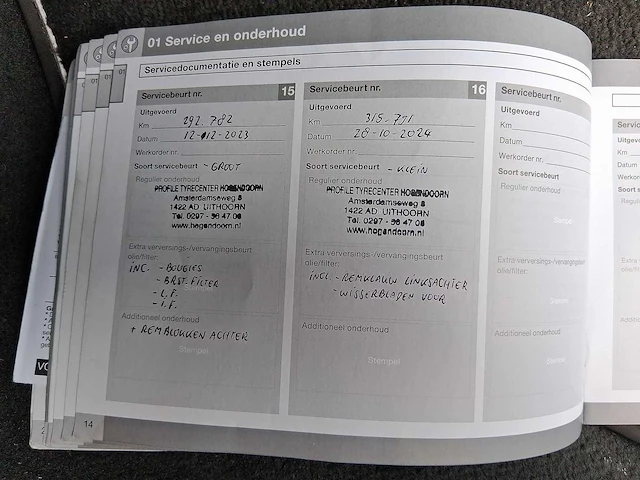 01 Service en onderhoud
Servicedocumentatie en stempels
Servicebeurt nr. 15
Uitgevoerd
Km 292.782
Datum 12-12-2023
Werkorder nr.
Soort servicebeurt - GROOT
Regulier onderhoud
PROFILE TYRECENTER HOGENDOORN
Amsterdamseweg 8
1422 AD UITHOORN
Tel. 0297 - 56 47 08
www.hogendoorn.nl
Extra verversings-/vervangingsbeurt
olie/filter:
inc. - BOUGIES
- BRST. FILTER
- L.F.
- I.F.
Additioneel onderhoud
+ REMBLOKKEN ACHTER
Stempel
14
Servicebeurt nr. 16
Uitgevoerd
Km 315.771
Datum 28-10-2024
Werkorder nr.
Soort servicebeurt - KLEIN
Regulier onderhoud
PROFILE TYRECENTER HOGENDOORN
Amsterdamseweg 8
1422 AD UITHOORN
Tel. 0297 - 56 47 08
www.hogendoorn.nl
Extra verversings-/vervangingsbeurt
olie/filter:
incl. - REMKLAUW LINKSACHTER
- WISSERBLADEN VOOR
Additioneel onderhoud
Stempel
Servicebeurt nr.
Uitgevoerd
Km
Datum
Werkorder nr.
Soort servicebeurt
Regulier onderhoud
Stempel
Extra verversings-/vervangings
olie/filter:
Stempel
Additioneel onderhoud
Stempel